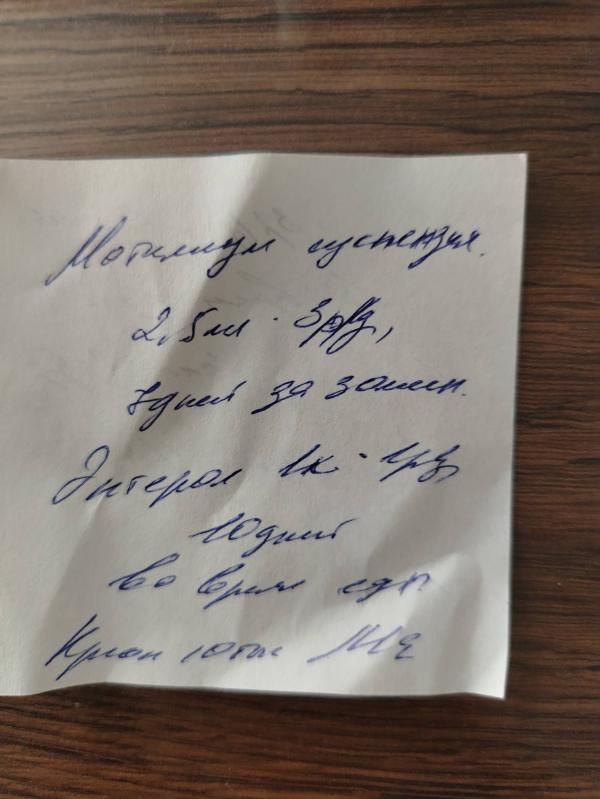 Мотилиум суспензия.
2,5мл · 3р/д,
7дней за 30мин.
Энтерол 1к · 1р/д
10дней
во время еды
Креон 10тыс